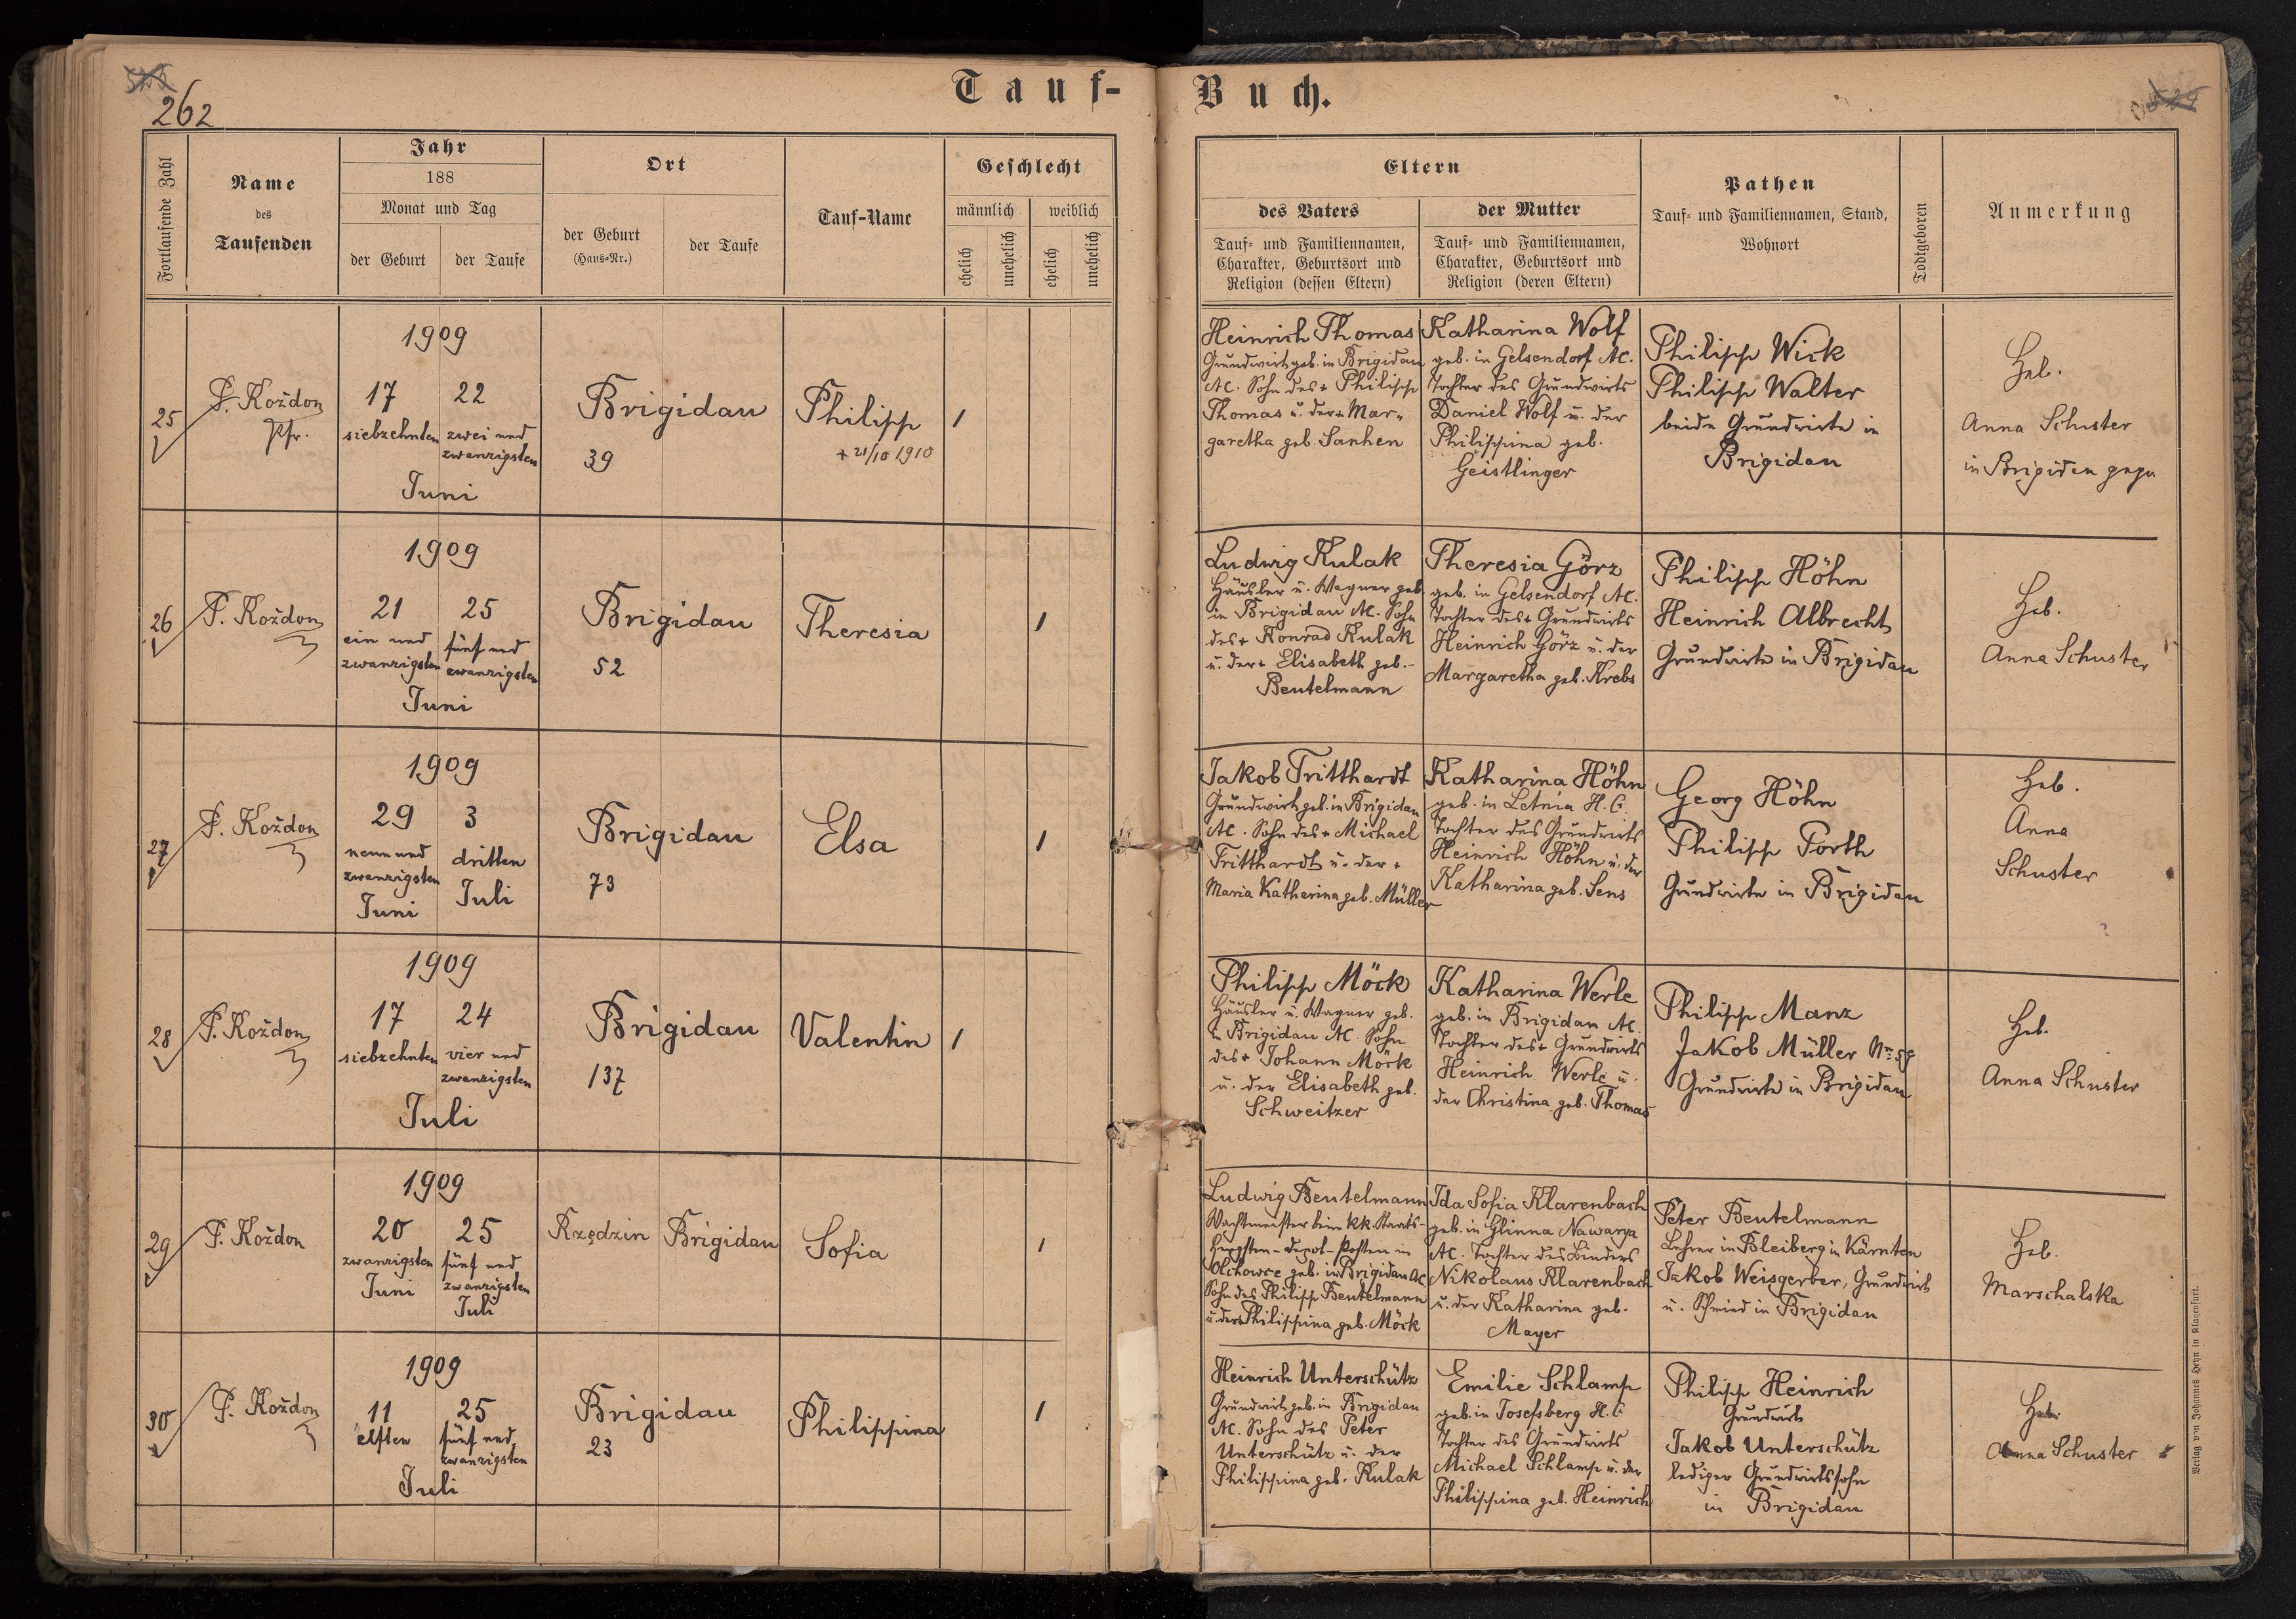 262
Tauf-
Buch.
Fortlaufende Zahl
Name
des
Taufenden
Jahr
188
Monat und Tag
der Geburt
der Taufe
Ort
der Geburt
(Haus-Nr.)
der Taufe
Tauf-Name
Geschlecht
männlich
weiblich
ehelich
unehelich
ehelich
unehelich
Eltern
des Vaters
Tauf- und Familiennamen,
Charakter, Geburtsort und
Religion (dessen Eltern)
der Mutter
Tauf- und Familiennamen,
Charakter, Geburtsort und
Religion (deren Eltern)
Pathen
Tauf- und Familiennamen, Stand,
Wohnort
Todtgeboren
Anmerkung
25
P. Koždon
Pfr.
1909
17
siebzehnten
22
zwei und
zwanzigsten
Juni
Brigidau
39
Philipp
+ 21/10 1910
1
Heinrich Thomas
Grundwirt geb. in Brigidau
AC. Sohn des + Philipp
Thomas u. der + Mar-
garetha geb. Sanhen
Katharina Wolf
geb. in Gelsendorf AC.
Tochter des Grundwirts
Daniel Wolf u. der
Philippina geb.
Geistlinger
Philipp Wick
Philipp Walter
beide Grundwirte in
Brigidau
Heb.
Anna Schuster
in Brigidau
26
P. Koždon
1909
21
ein und
zwanzigsten
25
fünf und
zwanzigsten
Juni
Brigidau
52
Theresia
1
Ludwig Kulak
Häusler u. Wagner geb.
in Brigidau AC. Sohn
des + Konrad Kulak
u. der + Elisabeth geb.
Beutelmann
Theresia Görz
geb. in Gelsendorf AC.
Tochter des + Grundwirts
Heinrich Görz u. der
Margaretha geb. Krebs
Philipp Höhn
Heinrich Albrecht
Grundwirte in Brigidau
Heb.
Anna Schuster
27
P. Koždon
1909
29
neun und
zwanzigsten
Juni
3
dritten
Juli
Brigidau
73
Elsa
1
Jakob Tritthardt
Grundwirt geb. in Brigidau
AC. Sohn des + Michael
Tritthardt u. der +
Maria Katharina geb. Müller
Katharina Höhn
geb. in Letnia H.C.
Tochter des Grundwirts
Heinrich Höhn u. der
Katharina geb. Sens
Georg Höhn
Philipp Porth
Grundwirte in Brigidau
Heb.
Anna
Schuster
28
P. Koždon
1909
17
siebzehnten
24
vier und
zwanzigsten
Juli
Brigidau
137
Valentin
1
Philipp Möck
Häusler u. Wagner geb.
in Brigidau AC. Sohn
des + Johann Möck
u. der Elisabeth geb.
Schweitzer
Katharina Werle
geb. in Brigidau AC.
Tochter des + Grundwirts
Heinrich Werle u.
der Christina geb. Thomas
Philipp Manz
Jakob Müller Nr. 59
Grundwirte in Brigidau
Heb.
Anna Schuster
29
P. Koždon
1909
20
zwanzigsten
Juni
25
fünf und
zwanzigsten
Juli
Rzędzin
Brigidau
Sofia
1
Ludwig Beutelmann
Wachtmeister beim kk. Staats-
Hengsten-Depot-Posten in
Olchowce geb. in Brigidau AC
Sohn des Philipp Beutelmann
u. der + Philippina geb. Möck
Ida Sofia Klarenbach
geb. in Glinna Nawarya
AC. Tochter des Binders
Nikolaus Klarenbach
u. der Katharina geb.
Mayer
Peter Beutelmann
Lehrer in Bleiberg in Kärnten
Jakob Weisgerber, Grundwirt
u. Schmied in Brigidau
Heb.
Marschalska
30
P. Koždon
1909
11
elften
25
fünf und
zwanzigsten
Juli
Brigidau
23
Philippina
1
Heinrich Unterschütz
Grundwirt geb. in Brigidau
AC. Sohn des Peter
Unterschütz u. der
Philippina geb. Kulak
Emilie Schlamp
geb. in Josefsberg H.C
Tochter des Grundwirts
Michael Schlamp u. der
Philippina geb. Heinrich
Philipp Heinrich
Grundwirt
Jakob Unterschütz
lediger Grundwirtssohn
in Brigidau
Heb.
Anna Schuster
Verlag von Johannes Heyn in Klagenfurt.